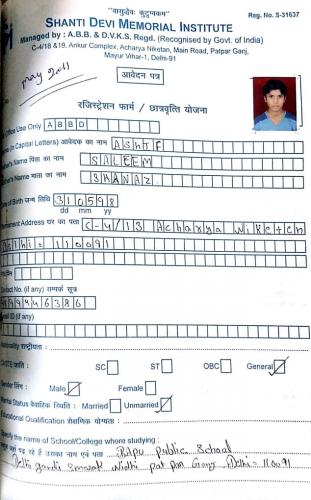 "वासुद्धैव: कुटुम्बकम"
Reg. No. S-31637
SHANTI DEVI MEMORIAL INSTITUTE
Managed by : A.B.B. & D.V.K.S. Regd. (Recognised by Govt. of India)
C-4/18 &19, Ankur Complex, Acharya Niketan, Main Road, Patpar Ganj,
Mayur Vihar-1, Delhi-91
may 2011
आवेदन पत्र
रजिस्ट्रेशन फार्म / छात्रवृत्ति योजना
Office Use Only A B B D
(in Capital Letters) आवेदक का नाम ASHIF
Name पिता का नाम SALEEM
Name माता का नाम SHANAZ
of Birth जन्म तिथि 310598
dd mm yy
Address घर का पता C-4/13 Acharya Niketan
Delhi=110091
Contact No. (if any) सम्पर्क सूत्र
ID (if any)
Nationality राष्ट्रीयता :
जाति : SC ST OBC General
लिंग : Male Female
Marital Status वैवाहिक स्थिति : Married Unmarried
Educational Qualification शैक्षणिक योग्यता :
Specify the name of School/College where studying :
पढ़ रहे हैं उसका नाम एवं पता Bapu Public School
Delhi gandi smarak nidhi pat par Ganj Delhi=110091